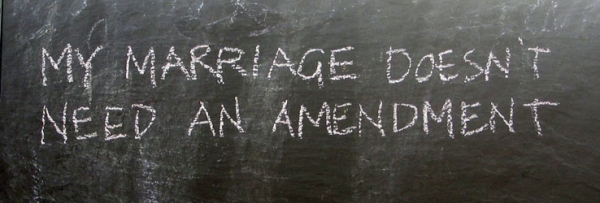 MY MARRIAGE DOESN'T
NEED AN AMENDMENT